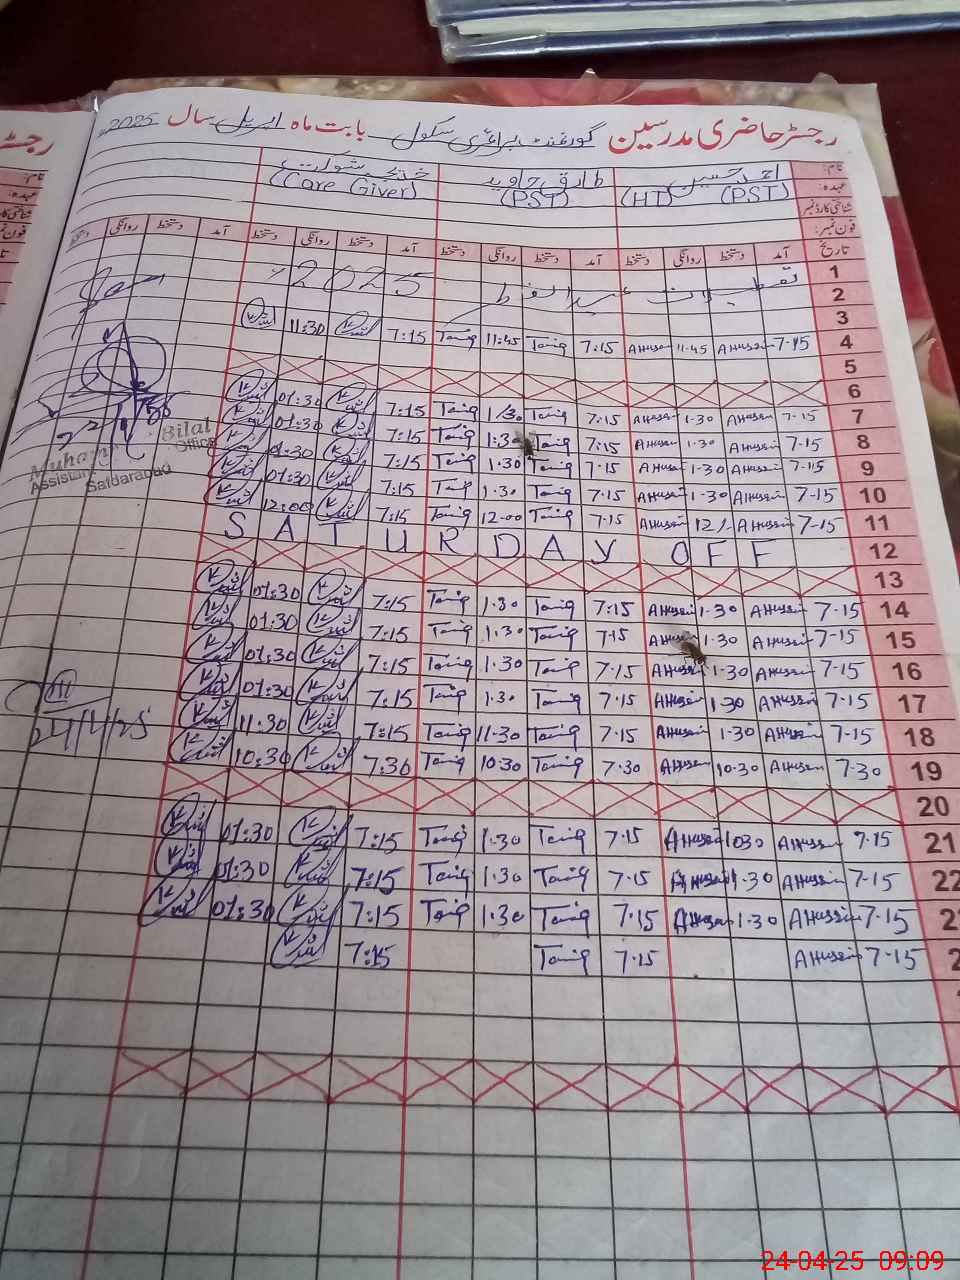 رجسٹر حاضری مدرسین گورنمنٹ پرائمری سکول بابت ماہ اپریل سال 2025
نام: احمد حسین طارق جاوید
عہدہ: (PST) (HT) (PST) (Care Giver)
شناختی کارڈ نمبر
فون نمبر:
تاریخ آمد دستخط روانگی دستخط آمد دستخط روانگی دستخط آمد دستخط روانگی دستخط آمد دستخط روانگی دستخط
1
2 تعطیلات عید الفطر 2025
3
4 7-15 AHussain 11-45 AHussain 7:15 Tariq 11:45 Tariq 7:15 11:30
5
6
7 7-15 AHussain 1-30 AHussain 7:15 Tariq 1/30 Tariq 7:15 01:30
8 7-15 AHussain 1-30 AHussain 7:15 Tariq 1:30 Tariq 7:15 01:30
9 7-15 AHussain 1-30 AHussain 7-15 Tariq 1.30 Tariq 7:15 01:30
10 7-15 AHussain 1-30 AHussain 7.15 Tariq 1.30 Tariq 7:15 01:30
11 7-15 AHussain 12/- AHussain 7.15 Tariq 12-00 Tariq 7:15 12:00
12 SATURDAY OFF
13
14 7-15 AHussain 1-30 AHussain 7:15 Tariq 1.30 Tariq 7:15 01:30
15 7-15 AHussain 1-30 AHussain 7.15 Tariq 1.30 Tariq 7:15 01:30
16 7-15 AHussain 1-30 AHussain 7.15 Tariq 1.30 Tariq 7:15 01:30
17 7-15 AHussain 1-30 AHussain 7.15 Tariq 1.30 Tariq 7:15 01:30
18 7-15 AHussain 1-30 AHussain 7.15 Tariq 11-30 Tariq 7:15 11:30
19 7-30 AHussain 10-30 AHussain 7.30 Tariq 10.30 Tariq 7:30 10:30
20
21 7-15 AHussain 1030 AHussain 7.15 Tariq 1.30 Tariq 7:15 01:30
22 7-15 AHussain 1.30 AHussain 7.15 Tariq 1.30 Tariq 7:15 01:30
2 7-15 AHussain 1.30 AHussain 7.15 Tariq 1.30 Tariq 7:15 01:30
2 7-15 AHussain 7.15 Tariq 7:15
Bilal
Assistant Officer
Safdarabad
24/4/25
24-04-25 09:09